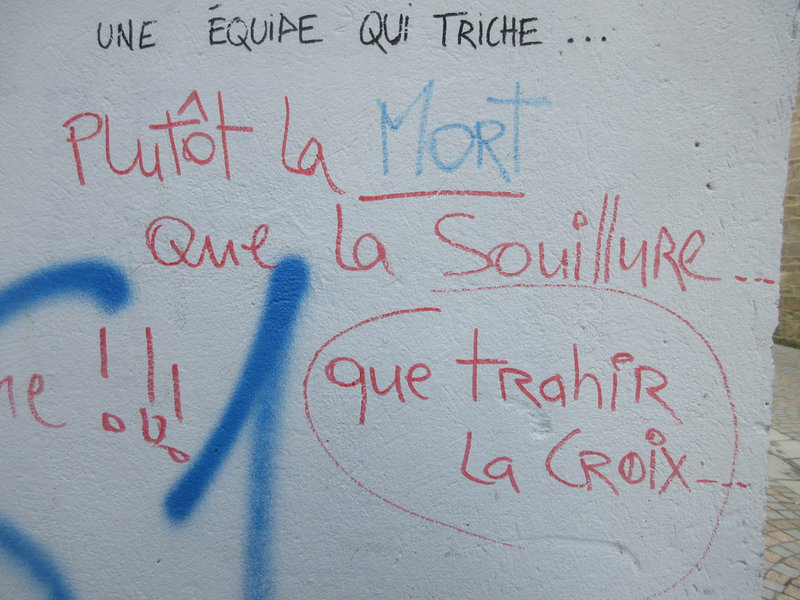 UNE ÉQUIPE QUI TRICHE ...
Plutôt la MORT
que la Souillure...
!!!
1
que trahir
la Croix...